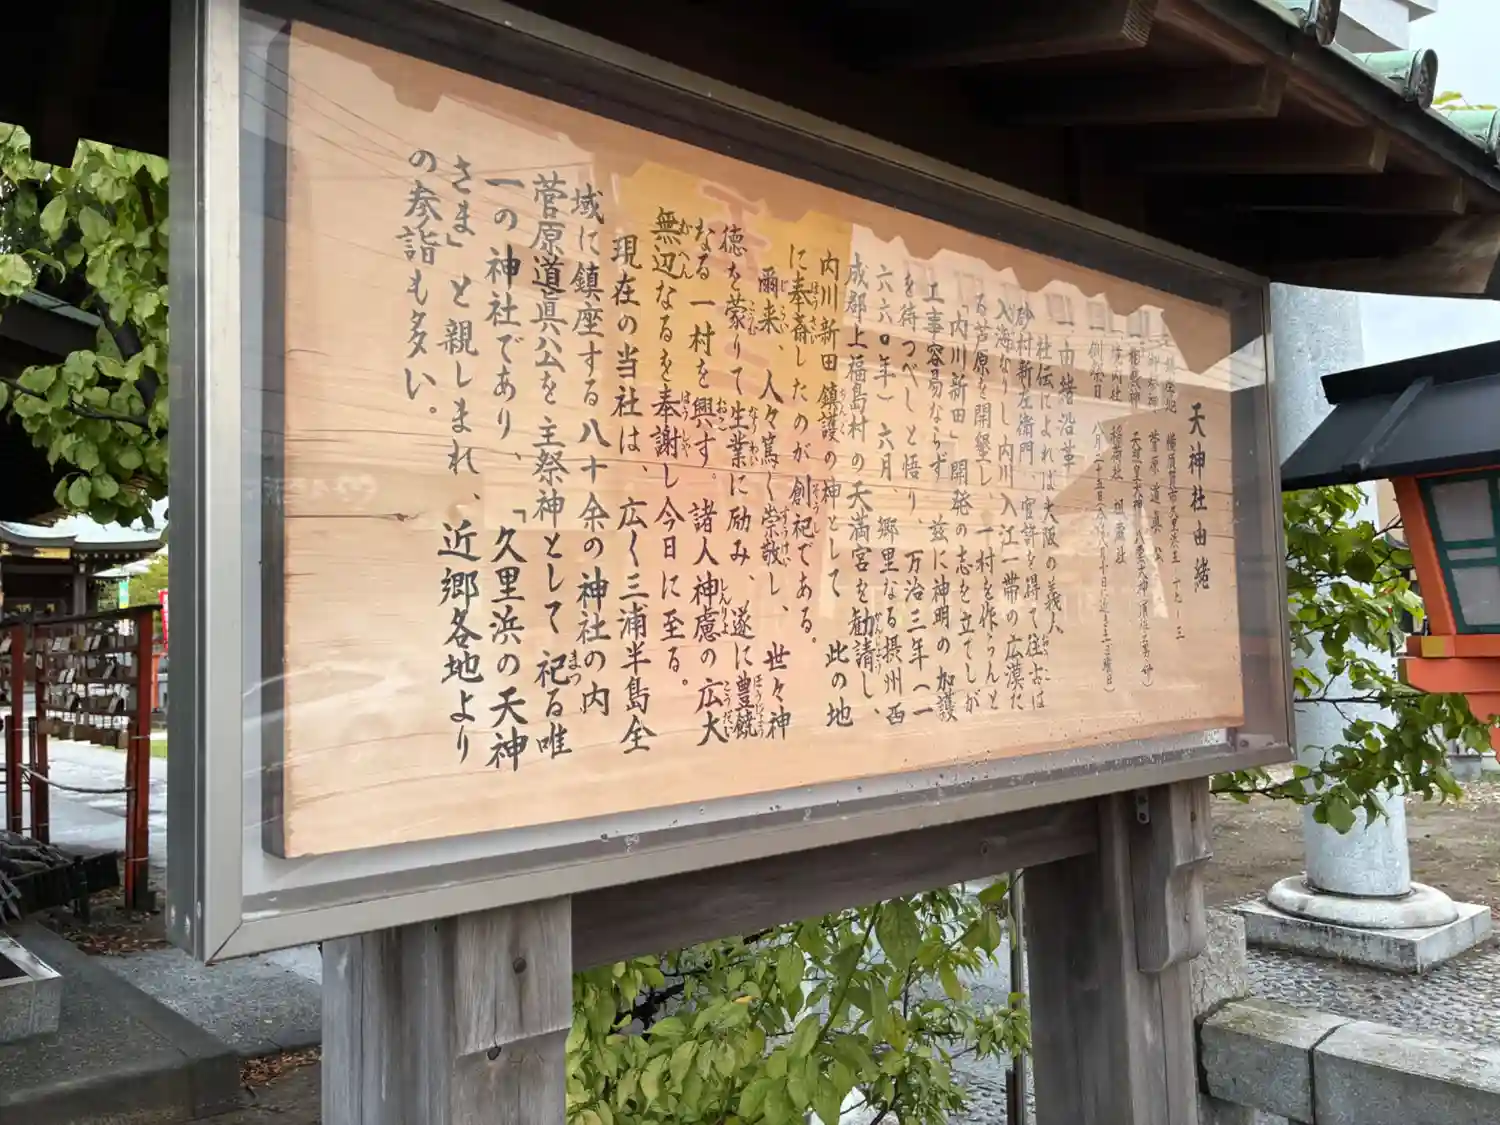 天神社由緒
一鎮座地 横須賀市久里浜
一御祭神 菅原道真公
一相殿神 天照皇大神
一境内社 稲荷社 祖霊社
一例祭日 八月二十五日
一由緒沿革
社伝によれば大阪の義人
砂村新左衛門、官許を得て往古は
入海なりし内川入江一帯の広漠た
る芦原を開墾し、一村を作らんと
「内川新田」開発の志を立てしが
工事容易ならず、茲に神明の加護
を待つべしと悟り、万治三年(一
六六〇年)六月、郷里なる摂州西
成郡上福島村の天満宮を勧請し、
内川新田鎮護の神として此の地
に奉斎したのが創祀である。
爾来、人々篤く崇敬し、世々神
徳を蒙りて生業に励み、遂に豊饒
なる一村を興す。諸人神慮の広大
無辺なるを奉謝し今日に至る。
現在の当社は、広く三浦半島全
域に鎮座する八十余の神社の内
菅原道眞公を主祭神として祀る唯
一の神社であり、「久里浜の天神
さま」と親しまれ、近郷各地より
の参詣も多い。